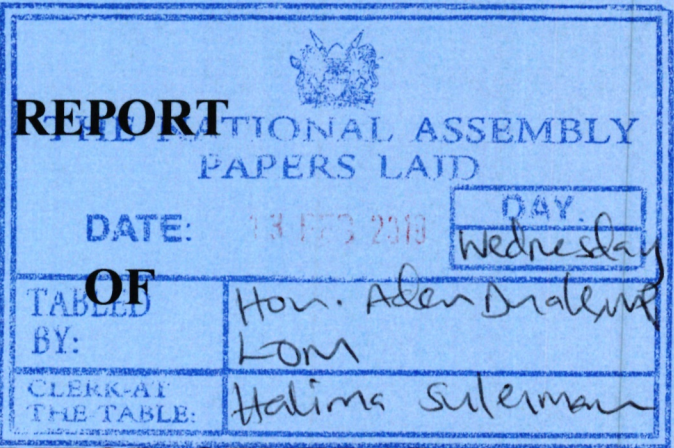 REPORT
THE NATIONAL ASSEMBLY
PAPERS LAID
DATE: 13 FEB 2019
DAY.
Wednesday
OF
TABLED BY:
Hon. Aden Duale, MP
LOM
CLERK-AT THE-TABLE:
Halima Suleiman